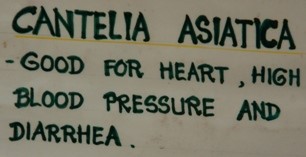 CANTELIA ASIATICA
- GOOD FOR HEART, HIGH
BLOOD PRESSURE AND
DIARRHEA.